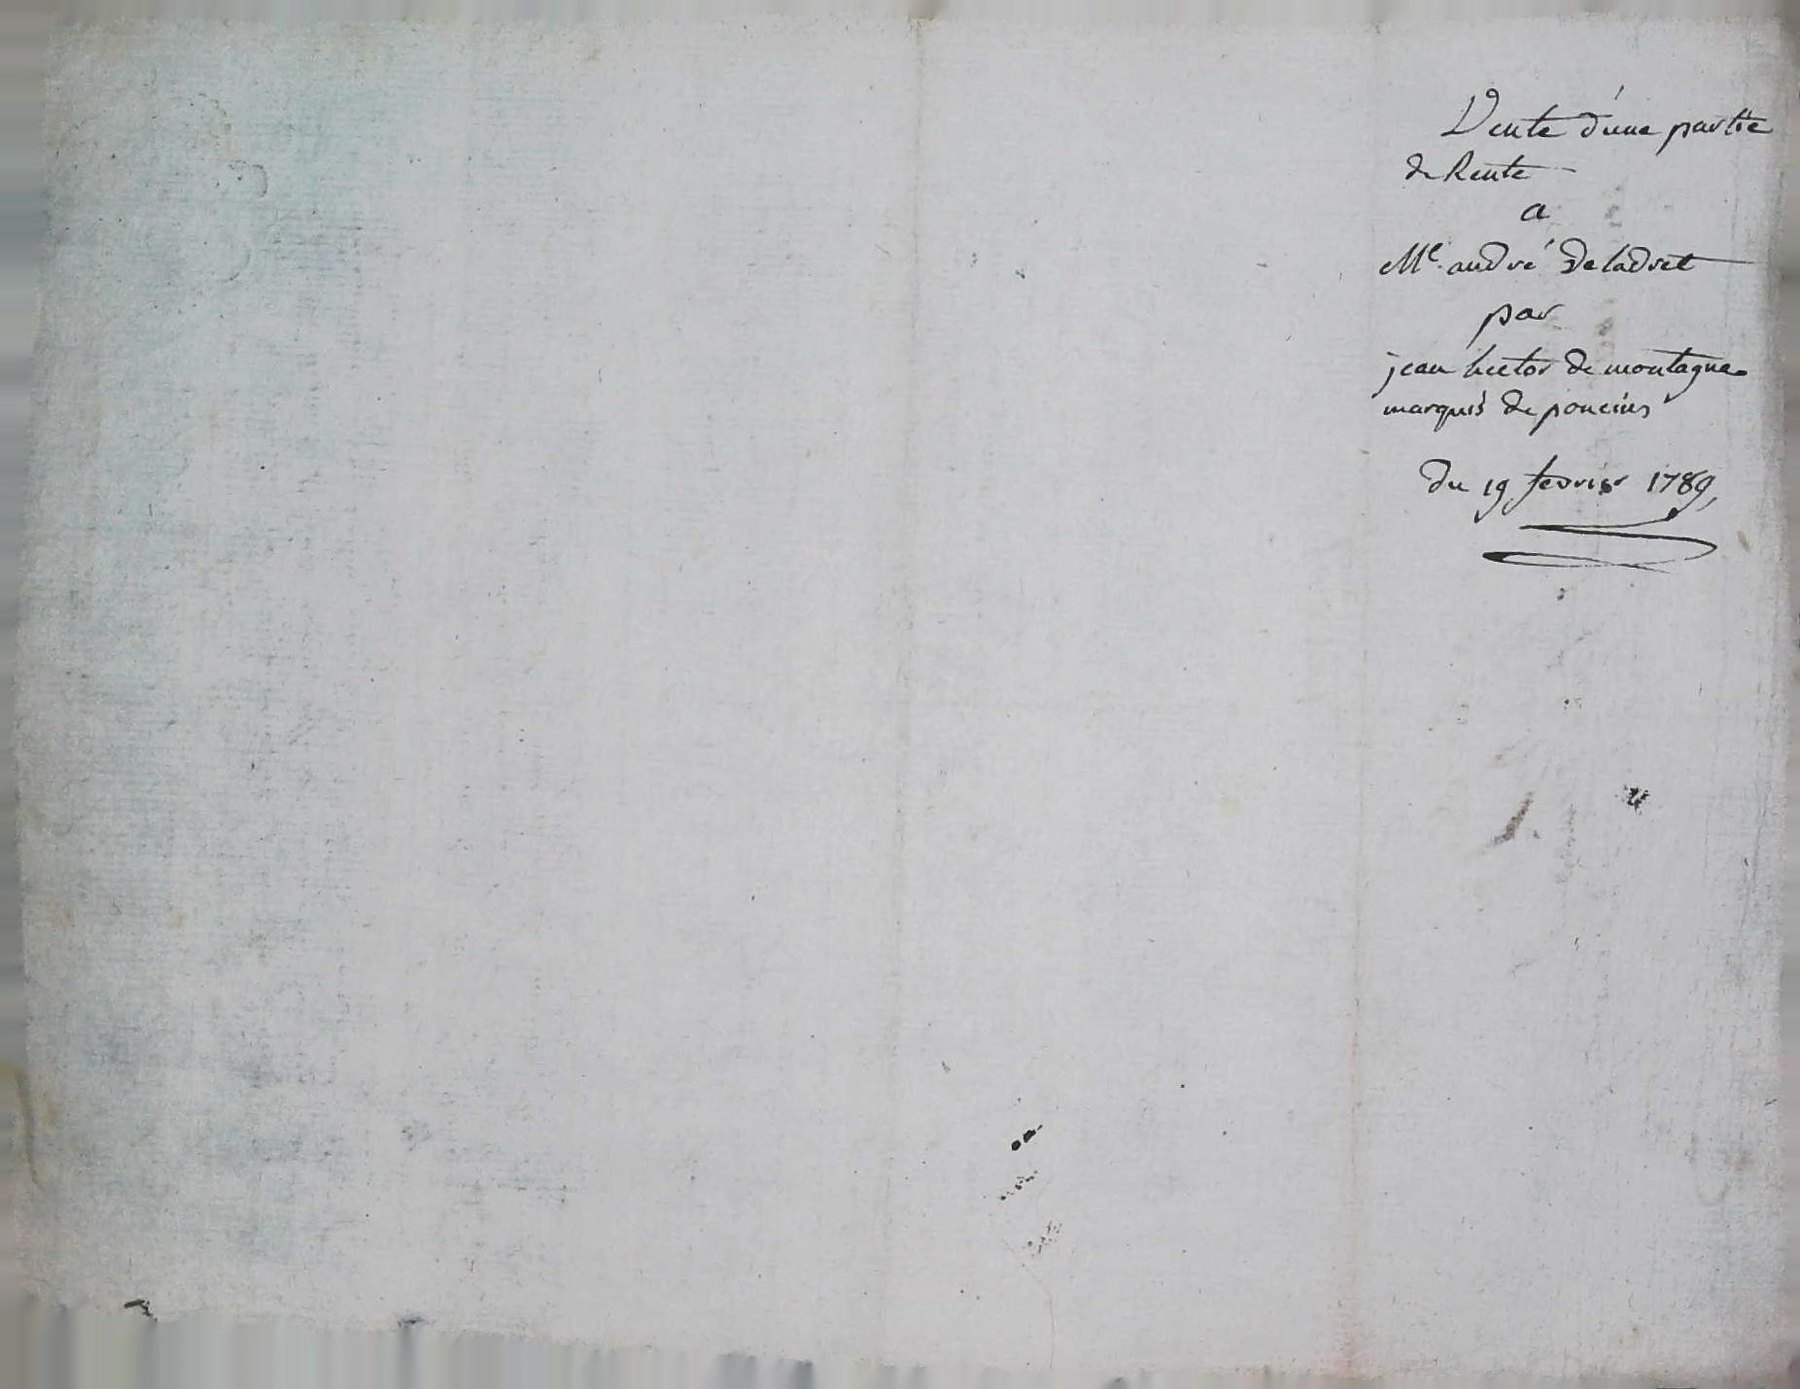 Vente d'une partie
de Rente
a
Me andré Deladret
par
jean hector de montagne
marquis de poncins
du 19 fevrier 1789,